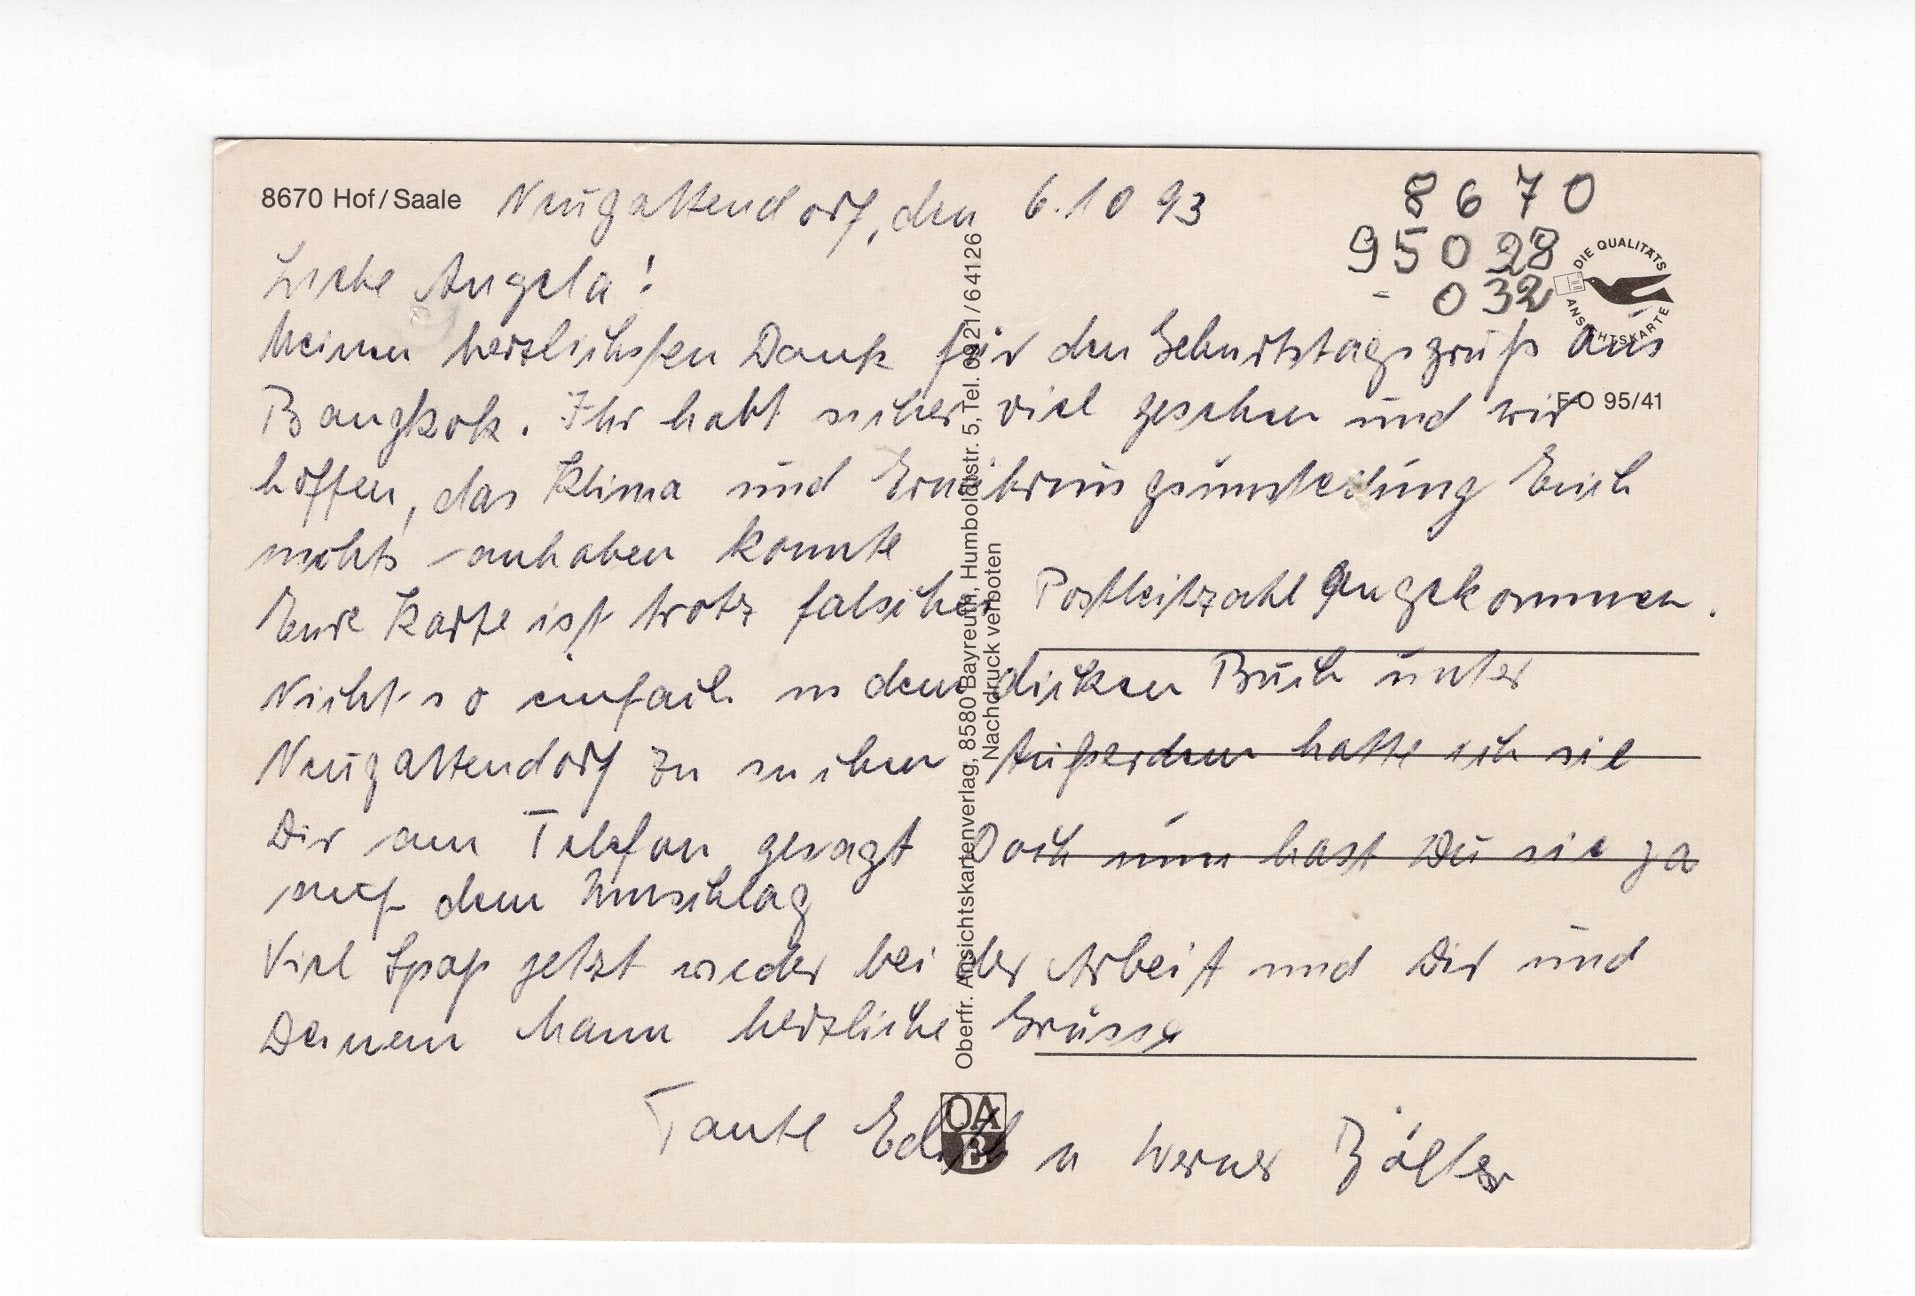 8670 Hof/Saale
Neugattendorf, den 6.10 93
8670
95028
032
DIE QUALITÄTS ANSICHTSKARTE
FO 95/41
Liebe Angela!
Meinen herzlichsten Dank für den Geburtstagsgruß aus
Bangkok. Ihr habt sicher viel gesehen und wir
hoffen, das Klima und Ernährungsumstellung Euch
nichts anhaben konnte
Eure Karte ist trotz falscher Postleitzahl angekommen.
Nicht so einfach in dem dicken Buch unter
Neugattendorf zu suchen Außerdem hatte ich sie
Dir am Telefon gesagt Doch nun hast Du sie ja
auf dem Umschlag
Viel Spaß jetzt wieder bei der Arbeit und Dir und
Deinem Mann herzliche Grüsse
Tante Edith u Werner
Oberfr. Ansichtskartenverlag, 8580 Bayreuth, Humboldtstr. 5, Tel. 0921/64126
Nachdruck verboten
OAB